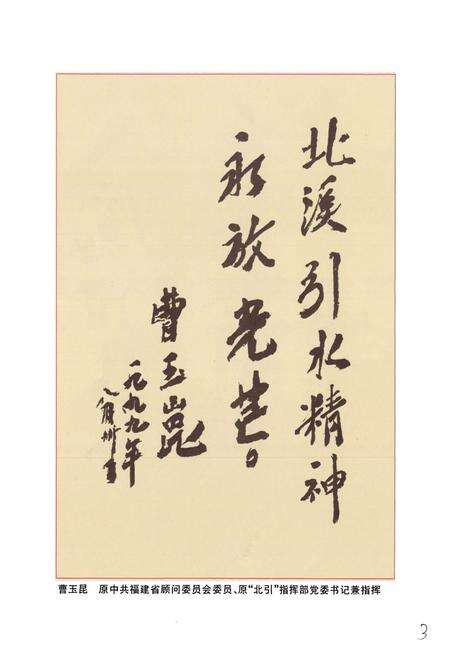 北溪引水精神
永放光芒。
曹玉崑
一九九九年
八月卅
曹玉昆 原中共福建省顾问委员会委员、原“北引”指挥部党委书记兼指挥
3